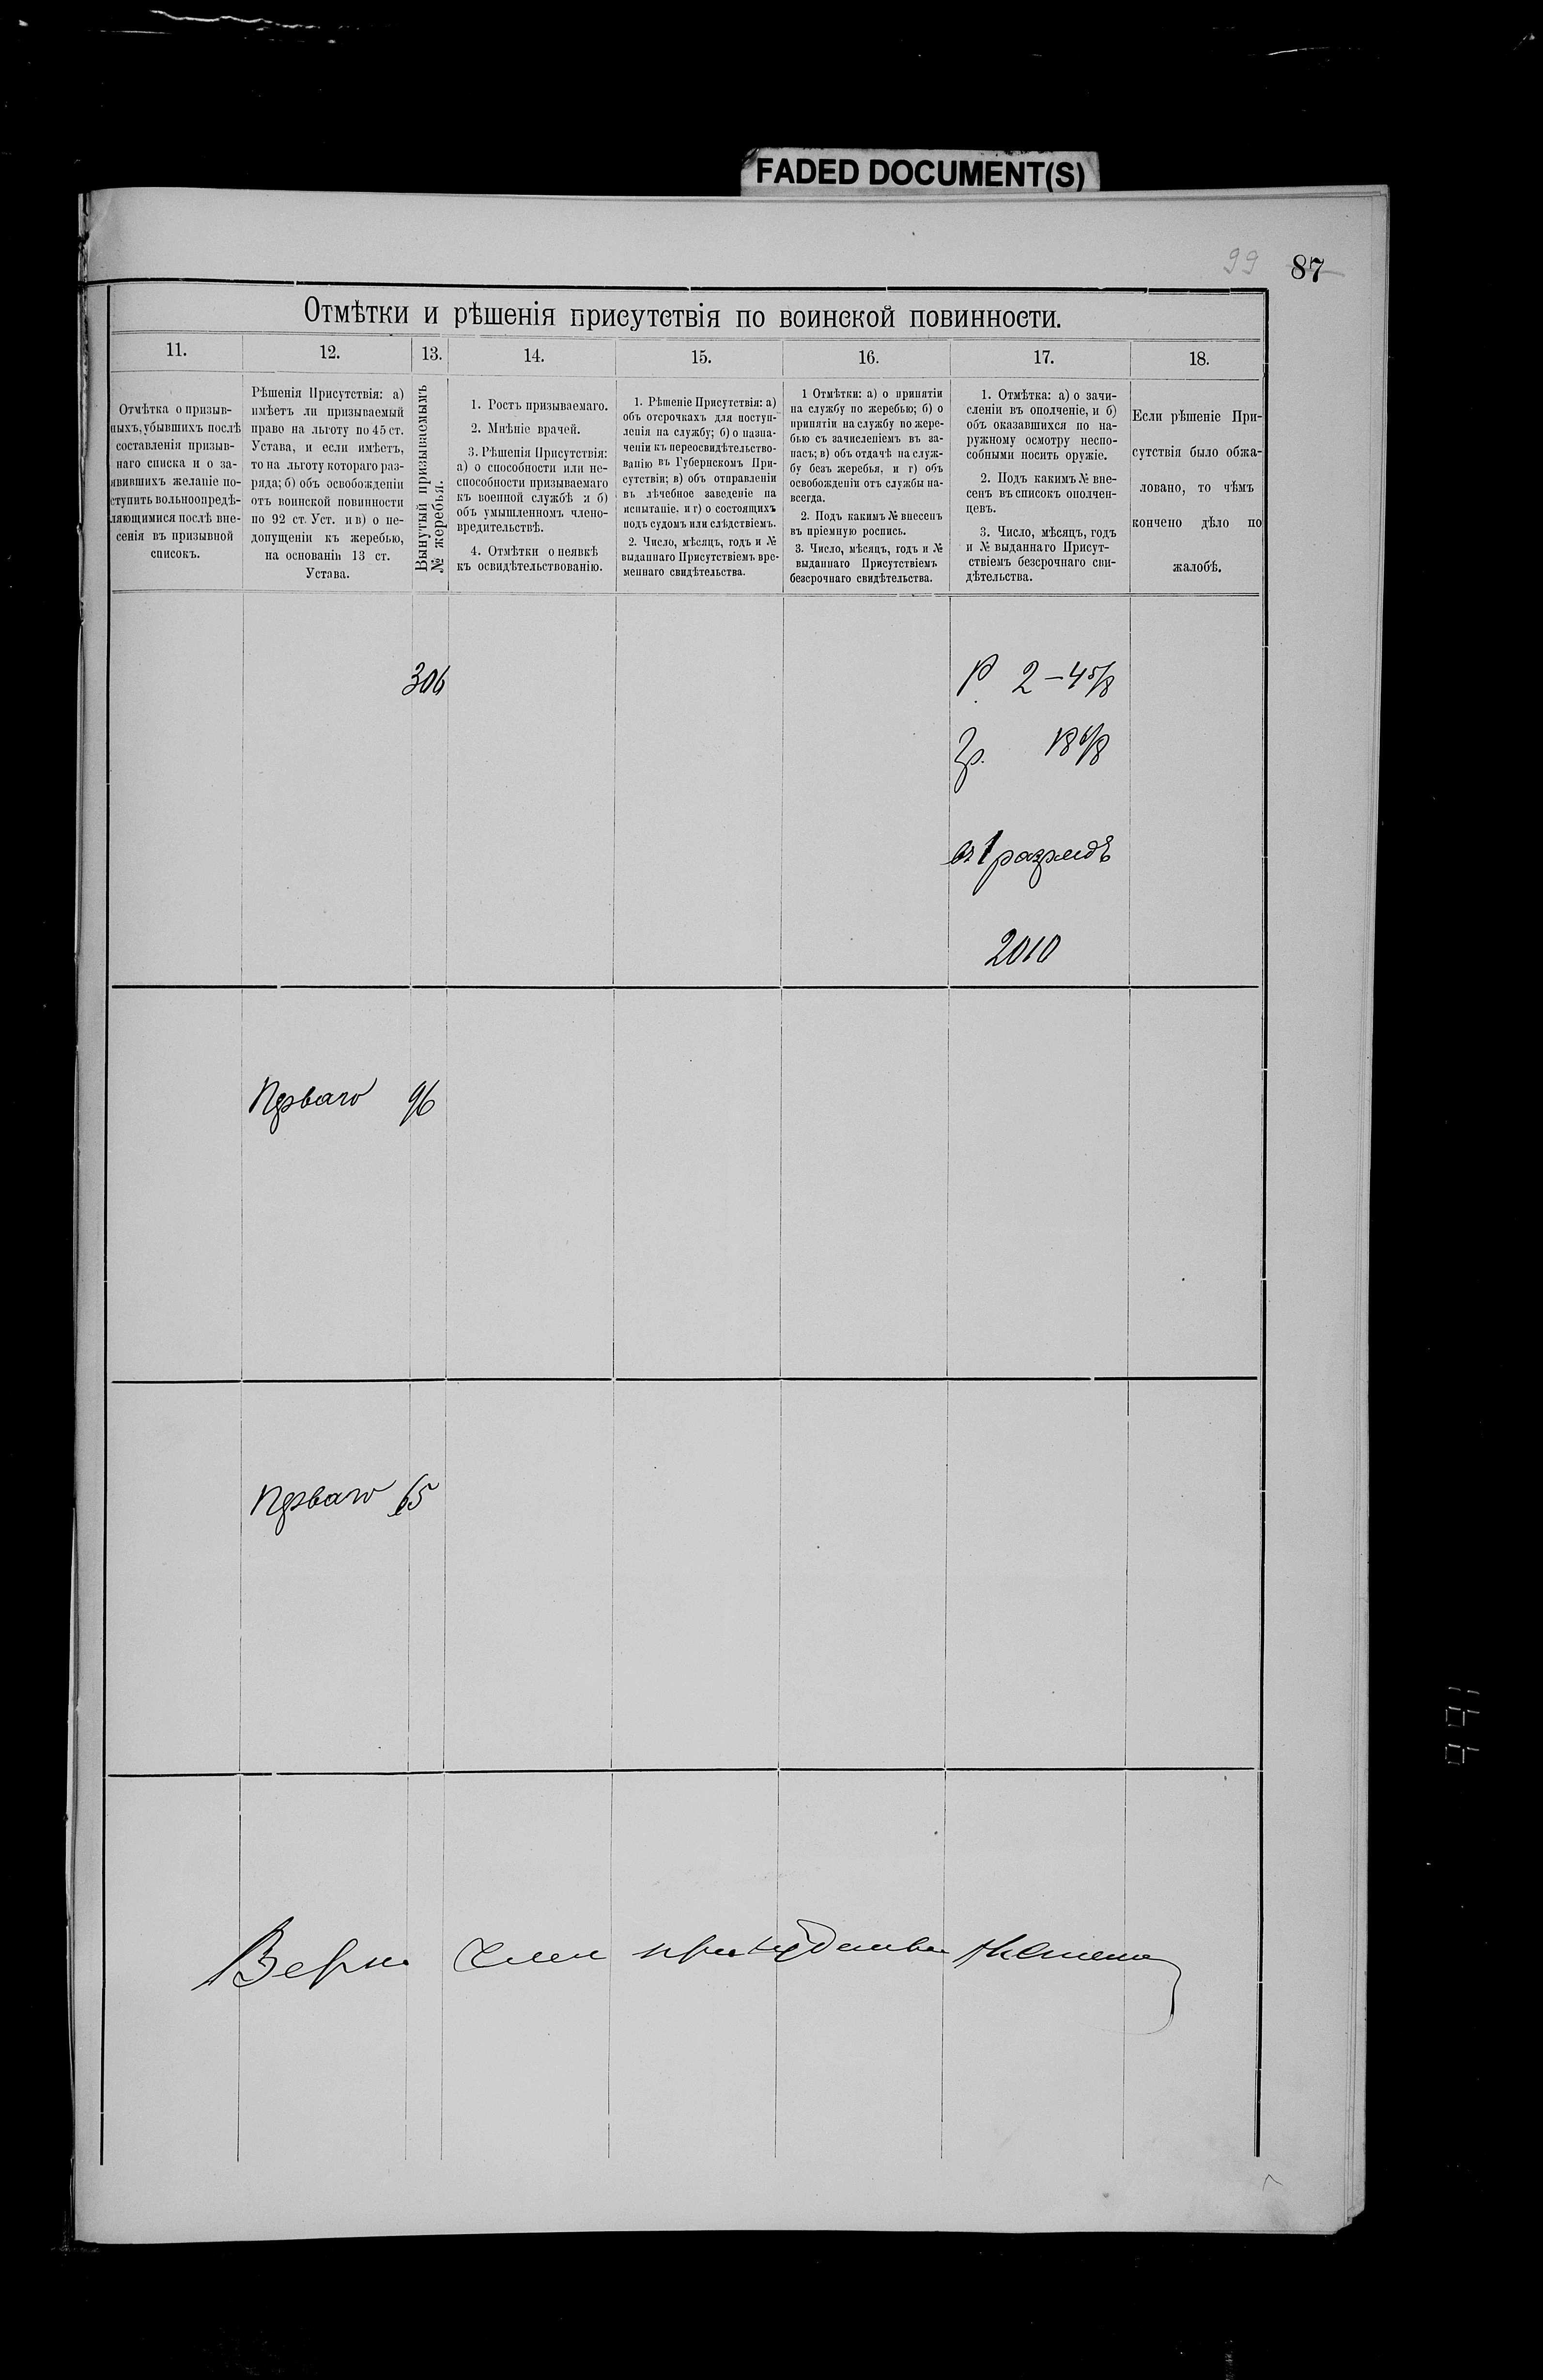 FADED DOCUMENT(S)
99 87
Отмѣтки и рѣшенія присутствія по воинской повинности.
11. 12. 13. 14. 15. 16. 17. 18.
Отмѣтка о призыв-
ныхъ, убывшихъ послѣ
составленія призыв-
наго списка и о за-
явившихъ желаніе по-
ступить вольноопредѣ-
ляющимися послѣ вне-
сенія въ призывной
списокъ.
Рѣшенія Присутствія: а)
имѣетъ ли призываемый
право на льготу по 45 ст.
Устава, и если имѣетъ,
то на льготу котораго раз-
ряда; б) объ освобожденіи
отъ воинской повинности
по 92 ст. Уст. и в) о не-
допущеніи къ жеребью,
на основаніи 13 ст.
Устава.
Вынутый призываемымъ
№ жеребья.
1. Ростъ призываемаго.
2. Мнѣніе врачей.
3. Рѣшенія Присутствія:
а) о способности или не-
способности призываемаго
къ военной службѣ и б)
объ умышленномъ члено-
вредительствѣ.
4. Отмѣтки о неявкѣ
къ освидѣтельствованію.
1. Рѣшеніе Присутствія: а)
объ отсрочкахъ для поступ-
ленія на службу; б) о назна-
ченіи къ переосвидѣтельство-
ванію въ Губернскомъ При-
сутствіи; в) объ отправленіи
въ лѣчебное заведеніе на
испытаніе, и г) о состоящихъ
подъ судомъ или слѣдствіемъ.
2. Число, мѣсяцъ, годъ и №
выданнаго Присутствіемъ вре-
меннаго свидѣтельства.
1 Отмѣтки: а) о принятіи
на службу по жеребью; б) о
принятіи на службу по жере-
бью съ зачисленіемъ въ за-
пасъ; в) объ отдачѣ на служ-
бу безъ жеребья, и г) объ
освобожденіи отъ службы на-
всегда.
2. Подъ какимъ № внесенъ
въ пріемную роспись.
3. Число, мѣсяцъ, годъ и №
выданнаго Присутствіемъ
безсрочнаго свидѣтельства.
1. Отмѣтка: а) о зачи-
сленіи въ ополченіе, и б)
объ оказавшихся по на-
ружному осмотру неспо-
собными носить оружіе.
2. Подъ какимъ № вне-
сенъ въ списокъ ополчен-
цевъ.
3. Число, мѣсяцъ, годъ
и № выданнаго Присут-
ствіемъ безсрочнаго сви-
дѣтельства.
Если рѣшеніе При-
сутствія было обжа-
ловано, то чѣмъ
кончено дѣло по
жалобѣ.
306 Р. 2-4 5/8
Гр. 18 6/8
въ 1 разрядъ
2010
Перваго 96
Перваго 65
Верно Член присудства
991